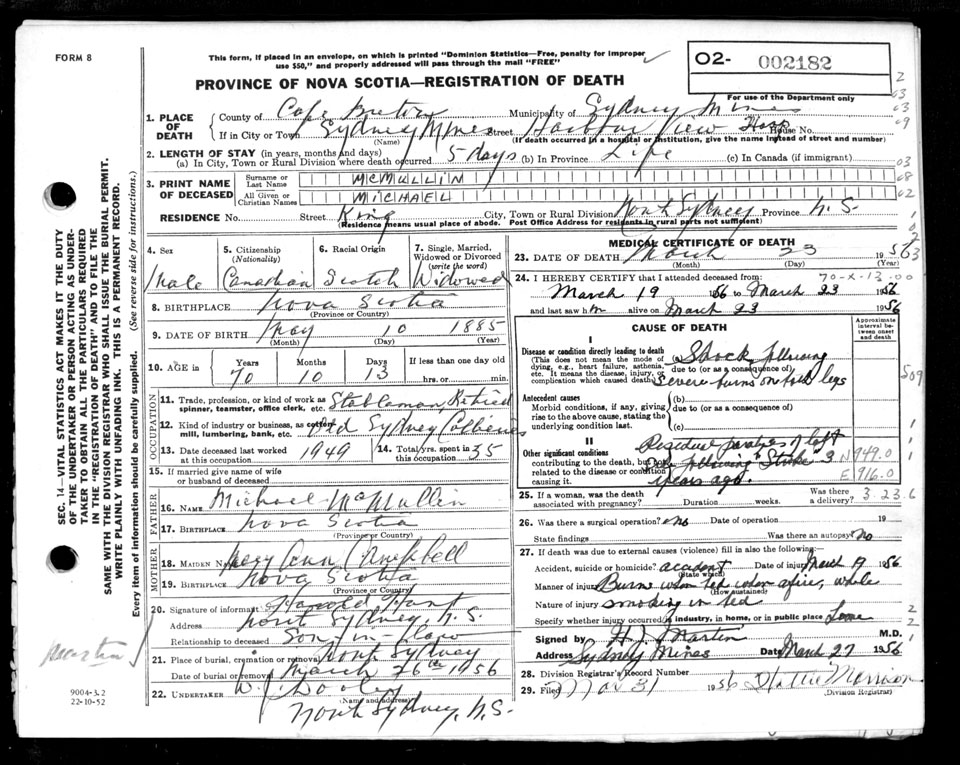 FORM 8
This form, if placed in an envelope, on which is printed "Dominion Statistics—Free, penalty for improper
use $50," and properly addressed will pass through the mail "FREE"
O2- 002182
PROVINCE OF NOVA SCOTIA—REGISTRATION OF DEATH
For use of the Department only
1. PLACE OF DEATH
County of Cape Breton Municipality of Sydney Mines
If in City or Town Sydney Mines Street Harbour View Hosp House No.
(Name) (If death occurred in a hospital or institution, give the name instead of street and number)
2. LENGTH OF STAY (in years, months and days)
(a) In City, Town or Rural Division where death occurred 5 days (b) In Province Life (c) In Canada (if immigrant)
3. PRINT NAME OF DECEASED
Surname or Last Name McMULLIN
All Given or Christian Names MICHAEL
RESIDENCE No. Street King City, Town or Rural Division North Sydney Province N.S.
(Residence means usual place of abode. Post Office Address for residents in rural parts not sufficient)
4. Sex Male
5. Citizenship (Nationality) Canadian
6. Racial Origin Scotch
7. Single, Married, Widowed or Divorced (write the word) Widowed
8. BIRTHPLACE Nova Scotia
(Province or Country)
9. DATE OF BIRTH May 10 1885
(Month) (Day) (Year)
10. AGE in Years 70 Months 10 Days 13 If less than one day old hrs. or min.
OCCUPATION
11. Trade, profession, or kind of work as spinner, teamster, office clerk, etc. Stableman, Retired
12. Kind of industry or business, as cotton-mill, lumbering, bank, etc. Old Sydney Collieries
13. Date deceased last worked 1949 14. Total yrs. spent in this occupation 35
15. If married give name of wife or husband of deceased
FATHER
16. NAME Michael McMullin
17. BIRTHPLACE Nova Scotia
(Province or Country)
MOTHER
18. MAIDEN NAME Mary Ann Campbell
19. BIRTHPLACE Nova Scotia
(Province or Country)
20. Signature of informant Harold
Address North Sydney, N.S.
Relationship to deceased Son-in-law
21. Place of burial, cremation or removal North Sydney
Date of burial or removal March 26th 1956
22. UNDERTAKER W. Dooley
(Name and Address)
North Sydney, N.S.
MEDICAL CERTIFICATE OF DEATH
23. DATE OF DEATH March 23 1956
(Month) (Day) (Year)
24. I HEREBY CERTIFY that I attended deceased from: 70-X-13-00
March 19 1956 to March 23 1956
and last saw him alive on March 23 1956
CAUSE OF DEATH
Approximate interval between onset and death
I
Disease or condition directly leading to death
(This does not mean the mode of dying, e.g., heart failure, asthenia, etc. It means the disease, injury, or complication which caused death)
(a) Shock following
due to (or as a consequence of)
Severe burns on both legs
Antecedent causes
Morbid conditions, if any, giving rise to the above cause, stating the underlying condition last.
(b)
due to (or as a consequence of)
(c)
II
Other significant conditions
contributing to the death, but not related to the disease or condition causing it.
Residual paralysis of left
following "Stroke" 3
years ago.
N949.0
E916.0
25. If a woman, was the death associated with pregnancy? Duration weeks. Was there a delivery? 3.23.6
26. Was there a surgical operation? no Date of operation 19
State findings Was there an autopsy? no
27. If death was due to external causes (violence) fill in also the following:
Accident, suicide or homicide? accident Date of injury March 19 1956
(State which)
Manner of injury Burns when bed when afire, while
(How sustained)
Nature of injury smoking in bed
Specify whether injury occurred in industry, in home, or in public place Home
Signed by H.J. Martin M.D.
Address Sydney Mines Date March 27 1956
28. Division Registrar's Record Number
29. Filed Mar 31 1956 Hattie Morrison
(Division Registrar)
SEC. 14—VITAL STATISTICS ACT MAKES IT THE DUTY
OF THE UNDERTAKER OR PERSON ACTING AS UNDERTAKER
TO OBTAIN ALL THE PARTICULARS REQUIRED
IN THE "REGISTRATION OF DEATH" AND TO FILE THE
SAME WITH THE DIVISION REGISTRAR WHO SHALL ISSUE THE BURIAL PERMIT.
WRITE PLAINLY WITH UNFADING INK. THIS IS A PERMANENT RECORD.
Every item of information should be carefully supplied. (See reverse side for instructions.)
Martin
9004-3.2
22-10-52